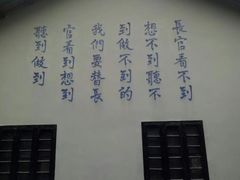 長官看不到
想不到聽不
到做不到的
我們要替長
官看到想到
聽到做到